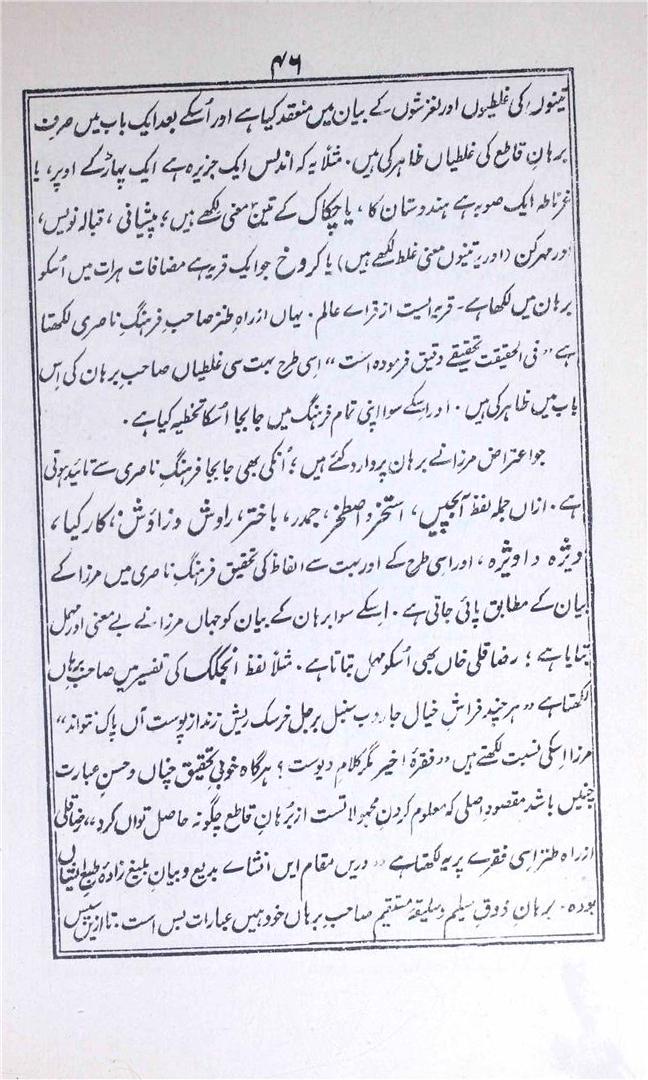 ۴۶
تینوں کی غلطیوں اور لغزشوں کے بیان میں منعقد کیا ہے اور اُسکے بعد ایک باب میں صرف
برہانِ قاطع کی غلطیاں ظاہر کی ہیں۔ مثلاً یہ کہ اندلس ایک جزیرہ ہے ایک پہاڑ کے اوپر، یا
غرناطہ ایک صوبہ ہے ہندوستان کا، یا چکاک کے تین معنی لکھے ہیں؛ پیشانی، قبالہ نویس،
اور مہرکن (اور یہ تینوں معنی غلط لکھے ہیں) یا کروخ جو ایک قریہ ہے مضافات ہرات میں اُسکو
برہان میں لکھا ہے۔ قریہ ایست از قراے عالم۔ یہاں از راہِ طنز صاحبِ فرہنگِ ناصری لکھتا
ہے ”فی الحقیقت تحقیقے دقیق فرمودہ است“ اِسی طرح بہت سی غلطیاں صاحبِ برہان کی اِس
باب میں ظاہر کی ہیں۔ اور اِسکے سوا اپنی تمام فرہنگ میں جابجا اُسکا تخطیہ کیا ہے۔
جو اعتراض مرزا نے برہان پر وارد کئے ہیں؛ اُنکی بھی جابجا فرہنگِ ناصری سے تائید ہوتی
ہے۔ ازاں جملہ لفظ آبچیں، استخر و اصطخر، جمدر، باختر، راوش و زاوش، کارکیا،
ویژہ و اویژہ، اور اسی طرح کے اور بہت سے الفاظ کی تحقیق فرہنگِ ناصری میں مرزا کے
بیان کے مطابق پائی جاتی ہے۔ اِسکے سوا برہان کے بیان کو جہاں مرزا نے بے معنی اور مہمل
بتایا ہے؛ رضا قلی خاں بھی اُسکو مہمل بتاتا ہے۔ مثلاً لفظ انجلک کی تفسیر میں صاحبِ برہان
لکھتا ہے ”ہرچند فراشِ خیال جاروب سنبل بر جل خرسک ریش زند از پوست آں پاک نتواند“
مرزا اِسکی نسبت لکھتے ہیں ”فقرۂ اخیر مگر کلامِ دیوست؟ ہرگاہ خوبیِ تحقیق چناں و حسنِ عبارت
چنیں باشد مقصودِ اصلی کہ معلوم کردنِ مجہولاتست از برہانِ قاطع چگونہ حاصل تواں کرد“، رضا قلی
از راہ طنز اِسی فقرے پر یہ لکھتا ہے ”دریں مقام ایں انشاے بدیع و بیانِ بلیغ زادۂ طبع ایشاں
بودہ۔ برہانِ ذوقِ سلیم و سلیقۂ مستقیم صاحبِ برہاں خود ہمیں عبارات بس است۔ تا ازیں سپس